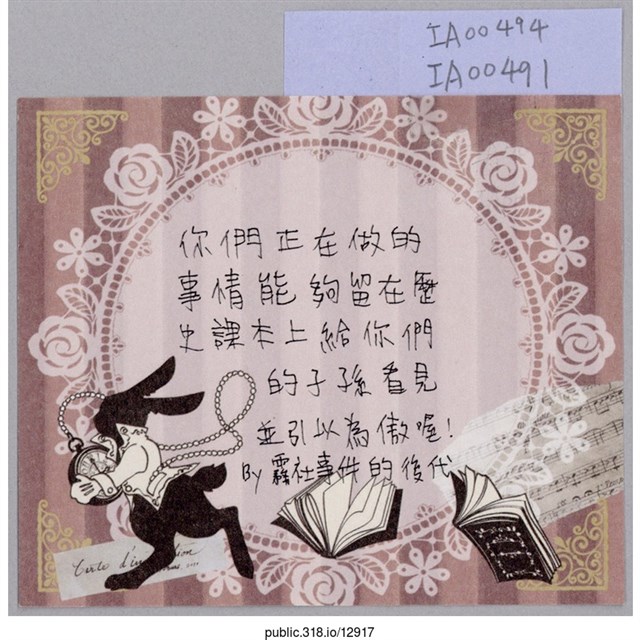 IA00494
IA00491
你們正在做的
事情能夠留在歷
史課本上給你們
的子孫看見
並引以為傲喔!
By 霧社事件的後代
Carte d'in
public.318.io/12917